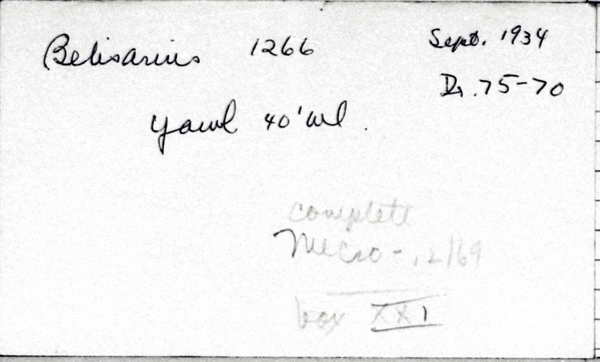 Belisarius 1266 Sept. 1934
Dr. 75-70
Yawl 40'wl.
complete
Micro - 12/69
box XXI